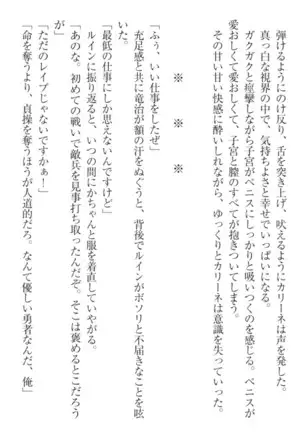 弾けるようにのけ反り、舌を突き上げ、吠えるようにカリーネは声を発した。
真っ白な視界の中で、気持ちよさと幸せでいっぱいになる。
ガクガクと痙攣しながら子宮がペニスにしっかりと吸いつくのを感じる。ペニスが
愛おしくて愛おしくて、子宮と膣のすべてが抱きついてしまう。
その甘い甘い快感に酔いしれながら、ゆっくりとカリーネは意識を失っていった。
※　※　※
「ふぅ、いい仕事をしたぜ」
充足感と共に竜治が額の汗をぬぐうと、背後でルインがボソリと不届きなことを呟
「最低の仕事にしか思えないんですけど」
ルインに振り返ると、いつの間にかちゃんと服を着直していやがる。
「あのな。初めての戦いで敵兵を見事打ち取ったんだぞ。そこは褒めるとこだろう
が」
「ただのレイプじゃないですかぁ！」
「命を奪うより、貞操を奪うほうが人道的だろ。なんて優しい勇者なんだ、俺」